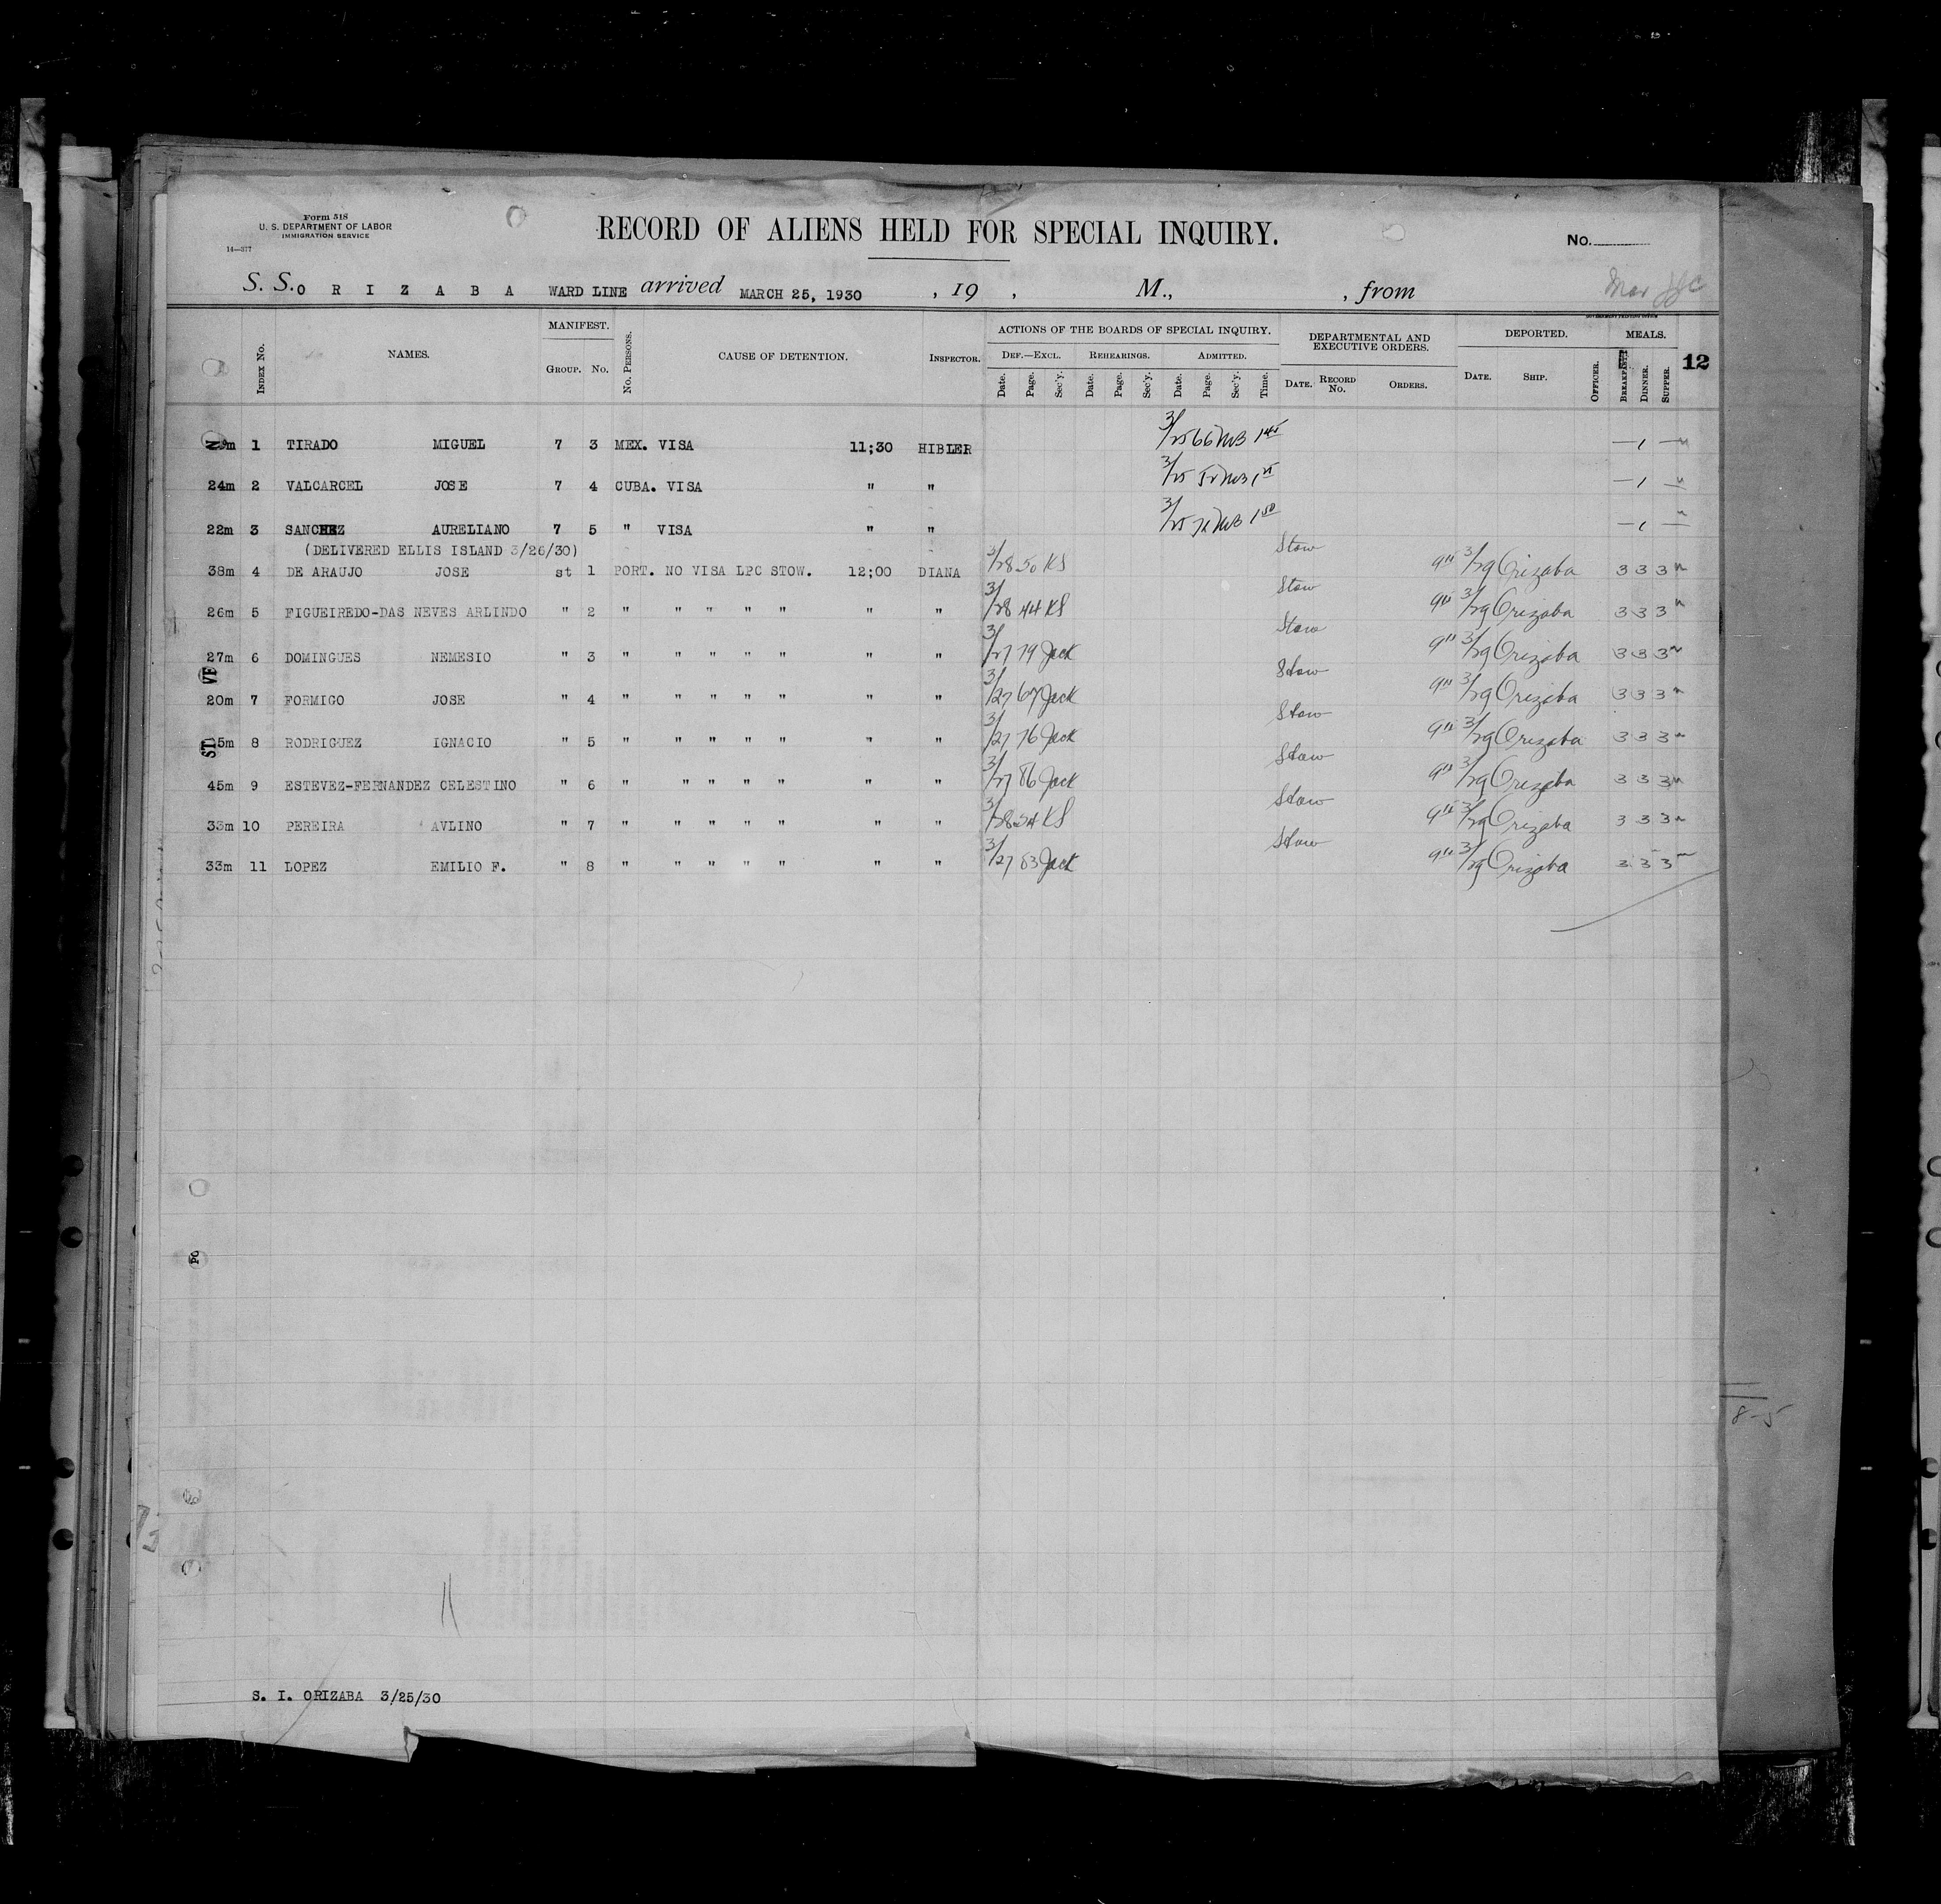 Form 518
U. S. DEPARTMENT OF LABOR
IMMIGRATION SERVICE
14—377
RECORD OF ALIENS HELD FOR SPECIAL INQUIRY.
No.
S. S. O R I Z A B A WARD LINE arrived MARCH 25, 1930 , 19 , M., , from
INDEX No. NAMES. MANIFEST. GROUP. No. No. PERSONS. CAUSE OF DETENTION. INSPECTOR. ACTIONS OF THE BOARDS OF SPECIAL INQUIRY. DEF.—EXCL. Date. Page. Sec'y. REHEARINGS. Date. Page. Sec'y. ADMITTED. Date. Page. Sec'y. Time. DEPARTMENTAL AND EXECUTIVE ORDERS. DATE. RECORD No. ORDERS. DEPORTED. DATE. SHIP. OFFICER. MEALS. BREAKFAST. DINNER. SUPPER. 12
1 TIRADO MIGUEL 7 3 MEX. VISA 11;30 HIBLER 3/25 66 MB 1 45 — 1 —
24m 2 VALCARCEL JOSE 7 4 CUBA. VISA " " 3/25 MB — 1 —
22m 3 SANCHEZ AURELIANO 7 5 " VISA " " 3/25 71 MB 1 50 — 1 —
(DELIVERED ELLIS ISLAND 3/26/30)
38m 4 DE ARAUJO JOSE st 1 PORT. NO VISA LPC STOW. 12;00 DIANA 3/28 50 KS Stow 3/29 Orizaba 3 3 3
26m 5 FIGUEIREDO-DAS NEVES ARLINDO " 2 " " " " " " " 3/28 44 KS Stow 3/29 Orizaba 3 3 3
27m 6 DOMINGUES NEMESIO " 3 " " " " " " " 3/27 79 Jack Stow 3/29 Orizaba 3 3 3
20m 7 FORMIGO JOSE " 4 " " " " " " " 3/27 67 Jack Stow 3/29 Orizaba 3 3 3
8 RODRIGUEZ IGNACIO " 5 " " " " " " " 3/27 76 Jack Stow 3/29 Orizaba 3 3 3
45m 9 ESTEVEZ-FERNANDEZ CELESTINO " 6 " " " " " " " 3/27 86 Jack Stow 3/29 Orizaba 3 3 3
33m 10 PEREIRA AVLINO " 7 " " " " " " " 3/28 54 KS Stow 3/29 Orizaba 3 3 3
33m 11 LOPEZ EMILIO F. " 8 " " " " " " " 3/27 83 Jack Stow 3/29 Orizaba 3 3 3
8-5
S. I. ORIZABA 3/25/30